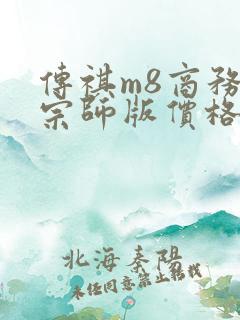 傳祺m8商務
宗師版價格
北海秦陽
未經同意禁止轉載